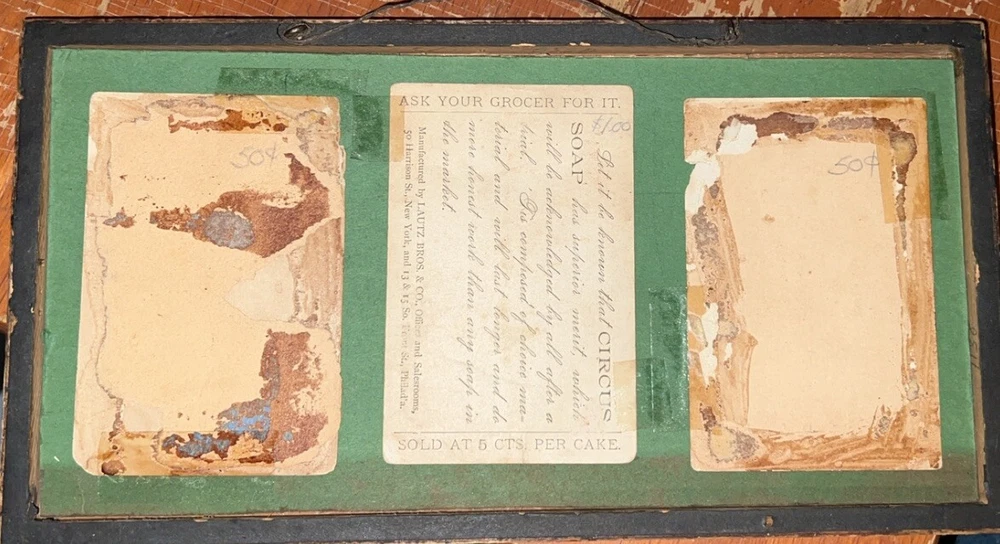 50¢
ASK YOUR GROCER FOR IT.
$1.00
Let it be known that CIRCUS
SOAP has superior merit, which
will be acknowledged by all after a
trial. 'Tis composed of choice ma-
terial and will last longer and do
more honest work than any soap in
the market.
Manufactured by LAUTZ BROS. & CO., Offices and Salesrooms,
50 Harrison St., New York, and 13 & 15 So. Front St., Philad'a.
SOLD AT 5 CTS. PER CAKE.
50¢